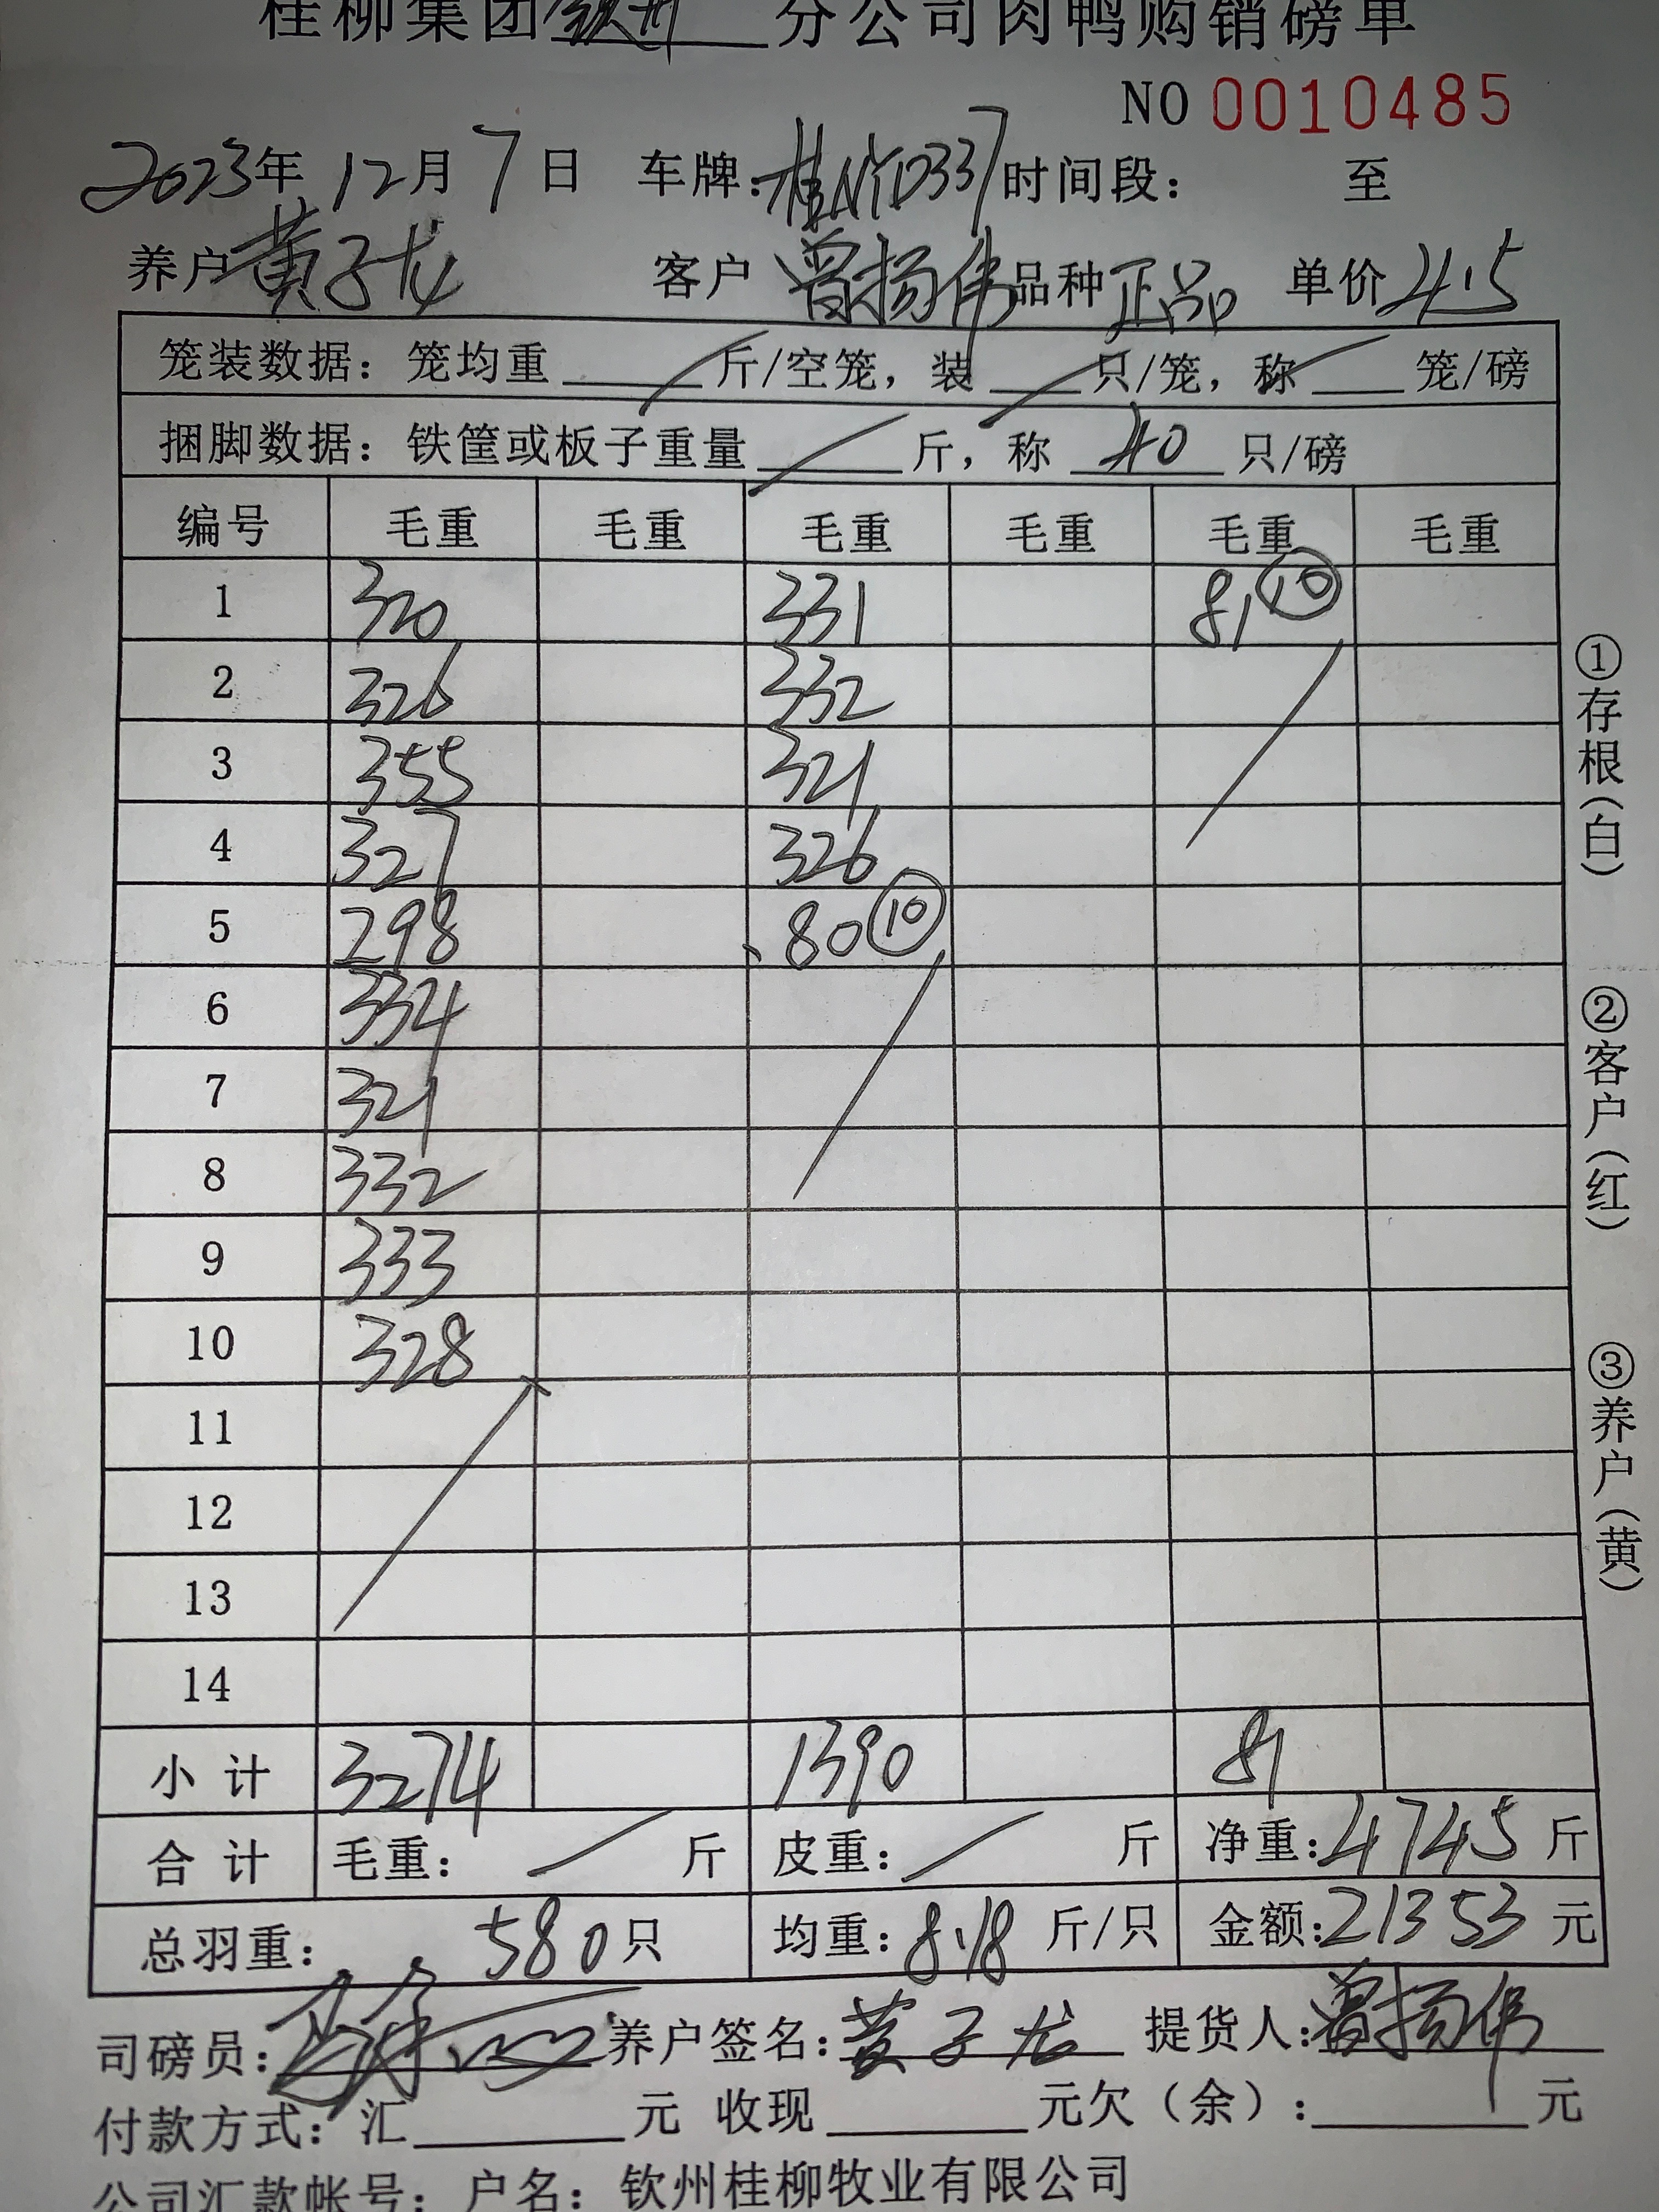 桂柳集团钦州分公司肉鸭购销磅单
NO 0010485
2023年 12月 7日 车牌:桂NYD337 时间段: 至
养户 黄子龙 客户 曾扬伟 品种 正品 单价 4.5
笼装数据: 笼均重 斤/空笼, 装 只/笼, 称 笼/磅
捆脚数据: 铁筐或板子重量 斤, 称 40 只/磅
编号 毛重 毛重 毛重 毛重 毛重 毛重
1 320 331 81 ⑩
2 326 332
3 355 321
4 327 326
5 298 80 ⑩
6 334
7 321
8 332
9 333
10 328
11
12
13
14
小计 3274 1390 81
合计 毛重: 斤 皮重: 斤 净重:4745斤
总羽重: 580只 均重:8.18 斤/只 金额:21353元
司磅员: 养户签名:黄子龙 提货人:曾扬伟
付款方式: 汇 元 收现 元欠(余): 元
公司汇款帐号: 户名: 钦州桂柳牧业有限公司
①存根(白)
②客户(红)
③养户(黄)